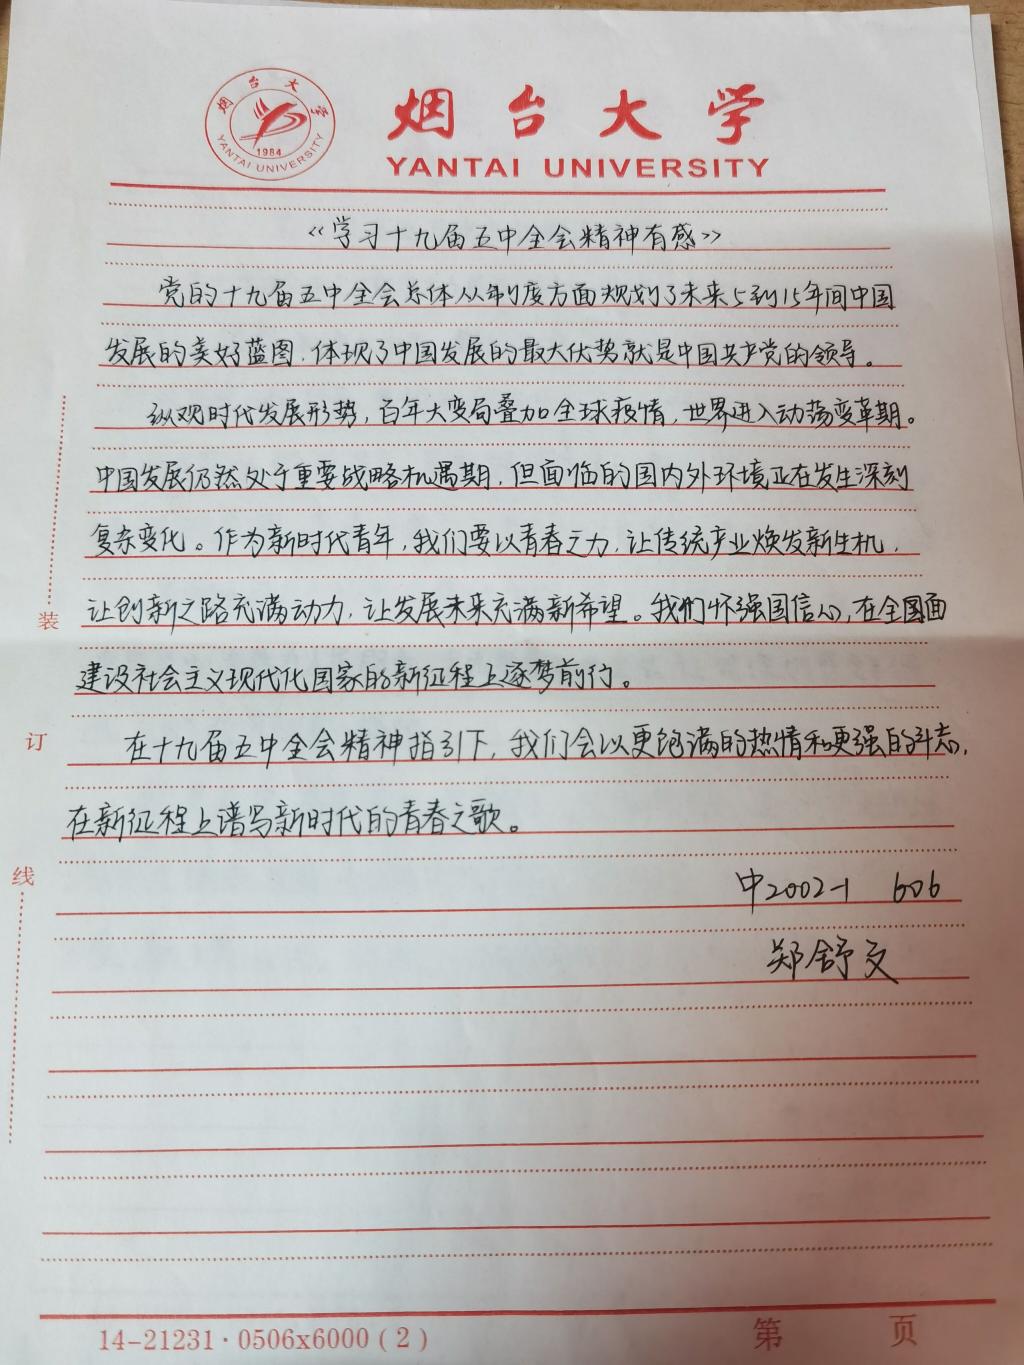 烟台大学
YANTAI UNIVERSITY
1984
烟台大学
YANTAI UNIVERSITY
《学习十九届五中全会精神有感》
党的十九届五中全会总体从制度方面规划了未来5到15年间中国
发展的美好蓝图,体现了中国发展的最大优势就是中国共产党的领导。
纵观时代发展形势,百年大变局叠加全球疫情,世界进入动荡变革期。
中国发展仍然处于重要战略机遇期,但面临的国内外环境正在发生深刻
复杂变化。作为新时代青年,我们要以青春之力,让传统产业焕发新生机,
让创新之路充满动力,让发展未来充满新希望。我们怀强国信心,在全国面
建设社会主义现代化国家的新征程上逐梦前行。
在十九届五中全会精神指引下,我们会以更饱满的热情和更强的斗志,
在新征程上谱写新时代的青春之歌。
中2002-1 606
郑舒文
装
订
线
14-21231·0506x6000(2)
第 页